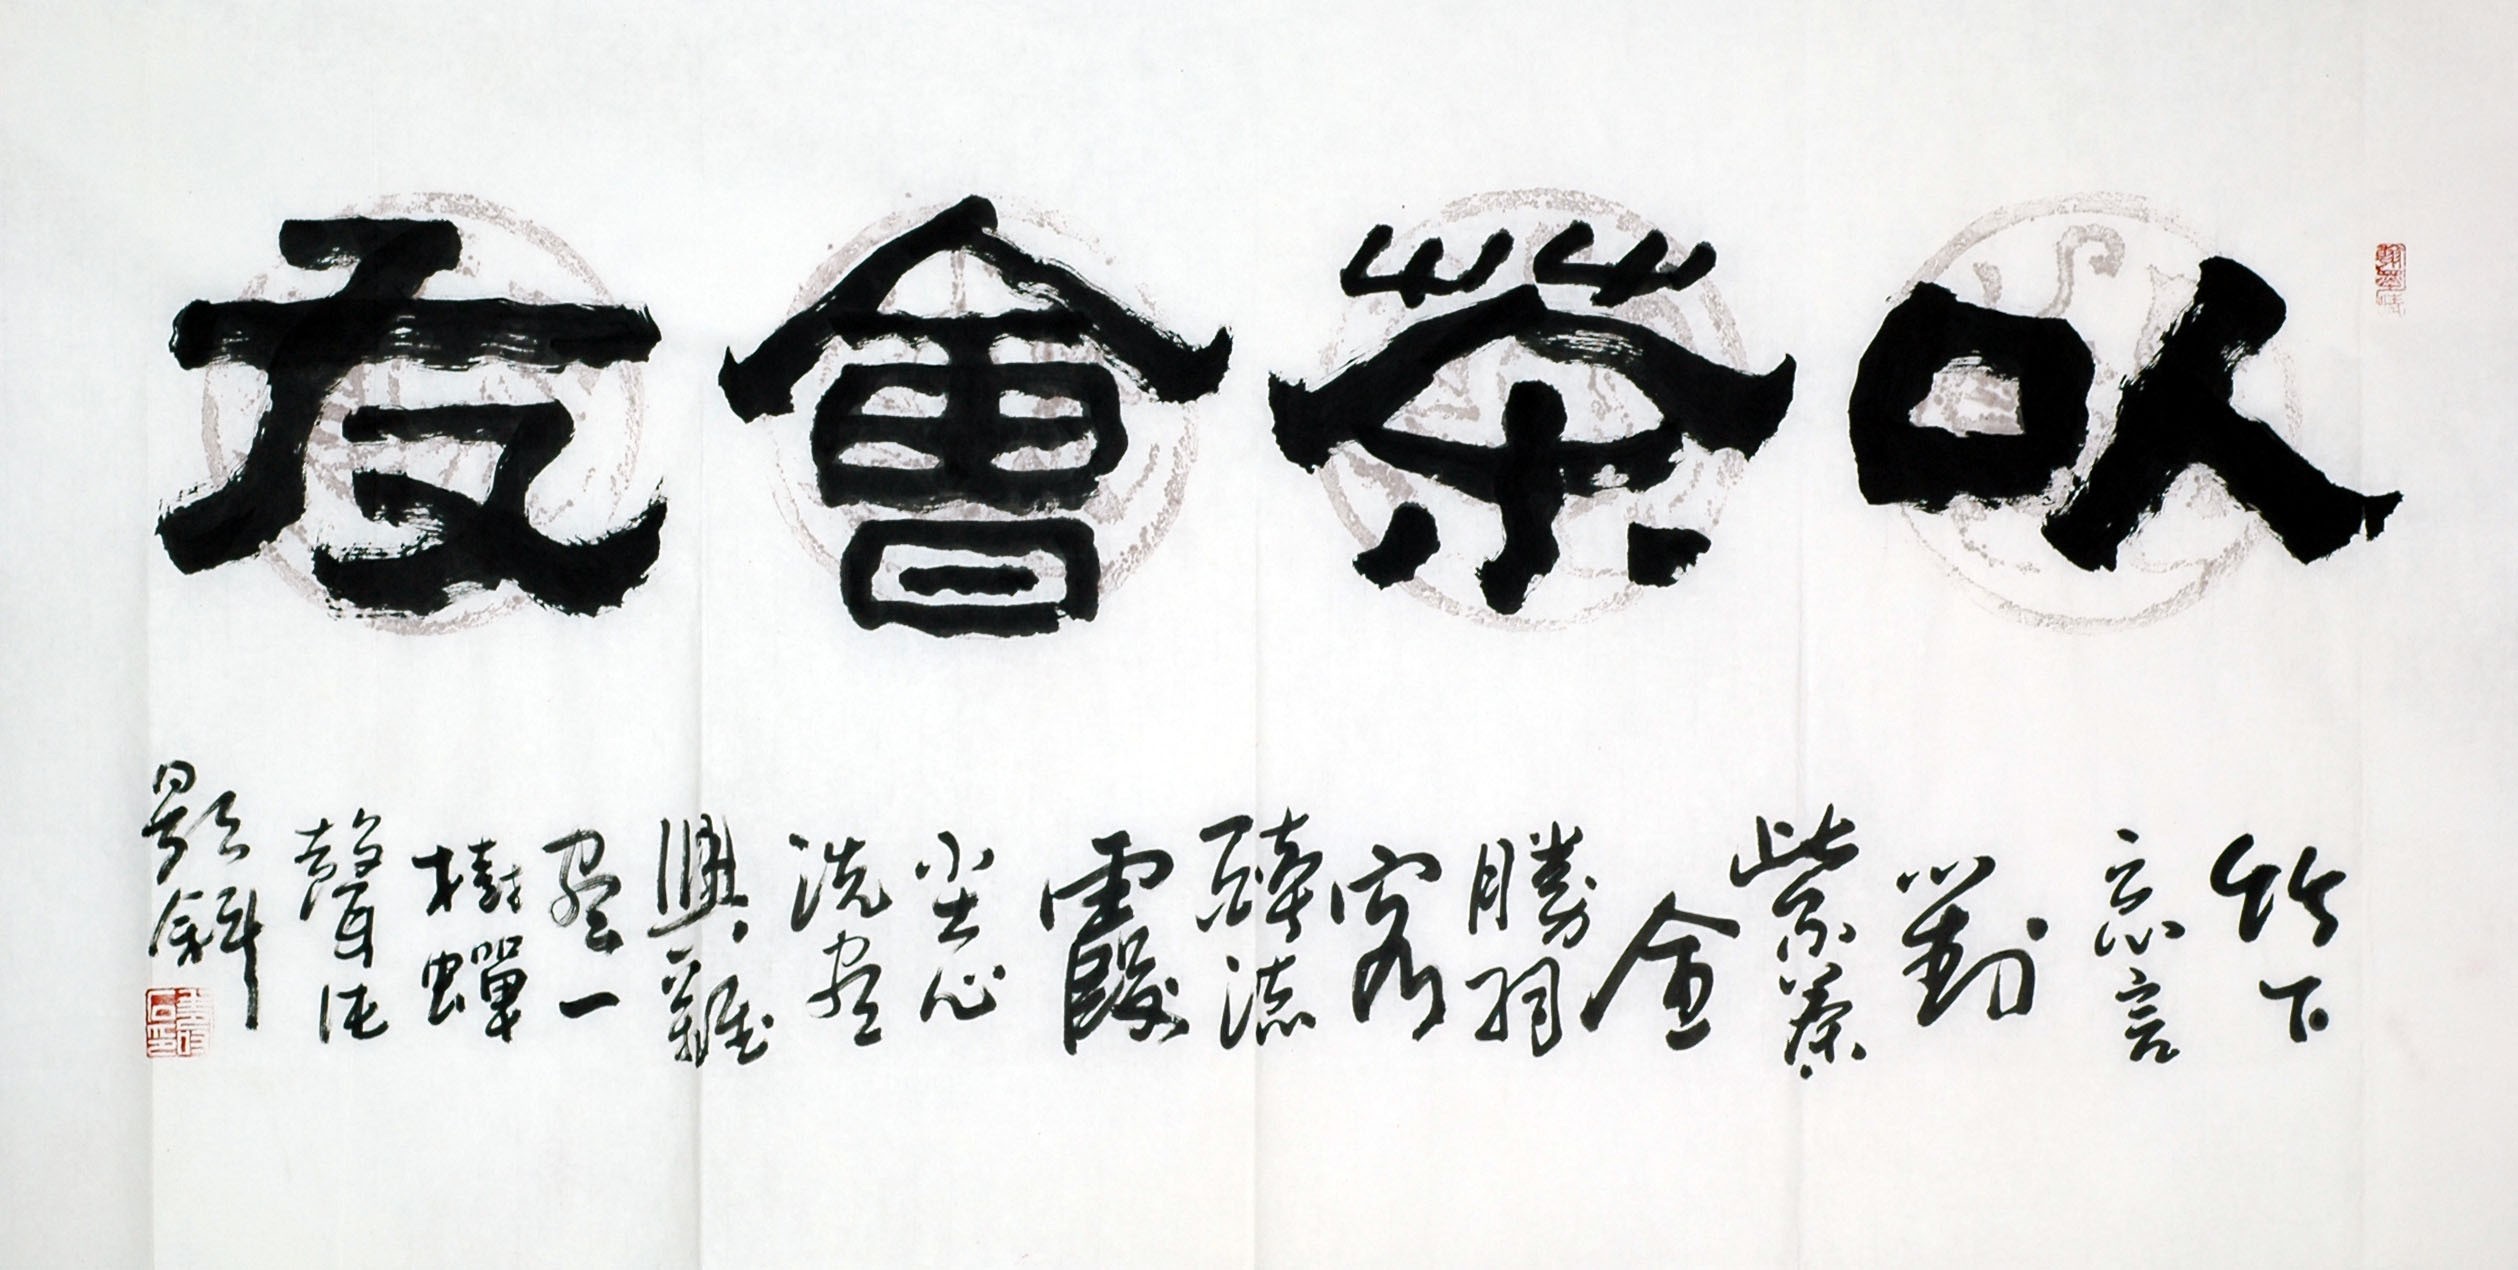 以茶會友
竹下
忘言
對
紫茶
全
勝羽
客
醉流
霞
尘心
洗盡
興難
盡一
樹蟬
聲片
影斜